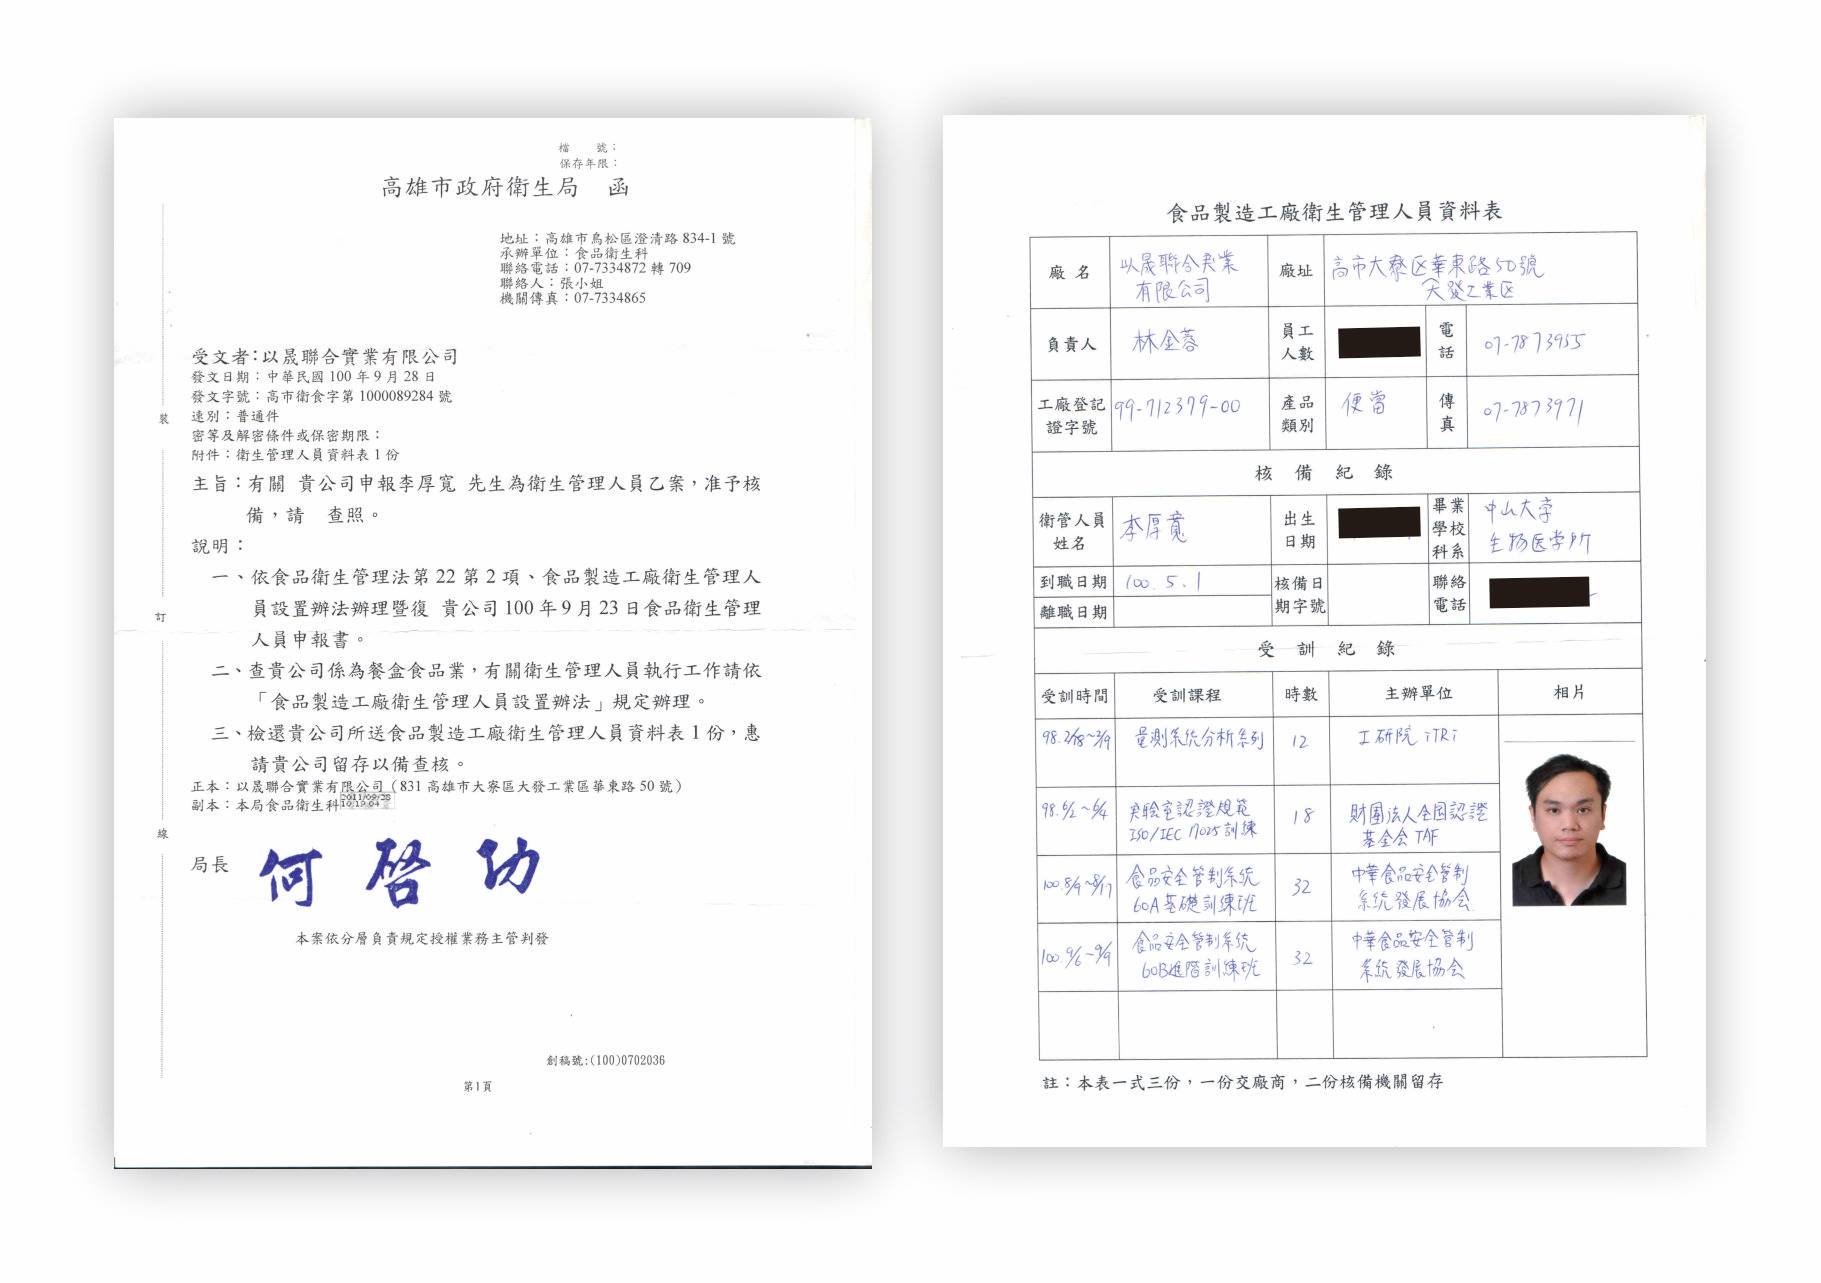 檔　　號：
保存年限：
高雄市政府衛生局　函
地址：高雄市鳥松區澄清路 834-1 號
承辦單位：食品衛生科
聯絡電話：07-7334872 轉 709
聯絡人：張小姐
機關傳真：07-7334865
受文者：以晟聯合實業有限公司
發文日期：中華民國 100 年 9 月 28 日
發文字號：高市衛食字第 1000089284 號
速別：普通件
密等及解密條件或保密期限：
附件：衛生管理人員資料表 1 份
主旨：有關 貴公司申報李厚寬 先生為衛生管理人員乙案，准予核
備，請　查照。
說明：
一、依食品衛生管理法第 22 第 2 項、食品製造工廠衛生管理人
員設置辦法辦理暨復 貴公司 100 年 9 月 23 日食品衛生管理
人員申報書。
二、查貴公司係為餐盒食品業，有關衛生管理人員執行工作請依
「食品製造工廠衛生管理人員設置辦法」規定辦理。
三、檢還貴公司所送食品製造工廠衛生管理人員資料表 1 份，惠
請貴公司留存以備查核。
正本：以晟聯合實業有限公司（831 高雄市大寮區大發工業區華東路 50 號）
副本：本局食品衛生科
2011/09/28
10:19:04
局長 何啓功
本案依分層負責規定授權業務主管判發
創稿號:(100)0702036
第1頁
裝
訂
線
食品製造工廠衛生管理人員資料表
廠名 以晟聯合実業
有限公司
廠址 高市大寮区華東路50號
大發工業区
負責人 林金蓉 員工
人數 電
話 07-7873955
工廠登記
證字號 99-712379-00 產品
類別 便當 傳
真 07-7873971
核備紀錄
衛管人員
姓名 李厚寬 出生
日期 畢業
學校
科系 中山大学
生物医学所
到職日期 100.5.1 核備日
期字號 聯絡
電話
離職日期
受訓紀錄
受訓時間 受訓課程 時數 主辦單位 相片
98.2/18~3/9 量測系統分析系列 12 工研院 iTRi
98.6/2~6/4 実驗室認證規範
ISO/IEC 17025訓練 18 財團法人全国認證
基金会 TAF
100.8/9~8/17 食品安全管制系統
60A基礎訓練班 32 中華食品安全管制
系統發展協会
100.9/6~9/9 食品安全管制系統
60B進階訓練班 32 中華食品安全管制
系統發展協会
註：本表一式三份，一份交廠商，二份核備機關留存